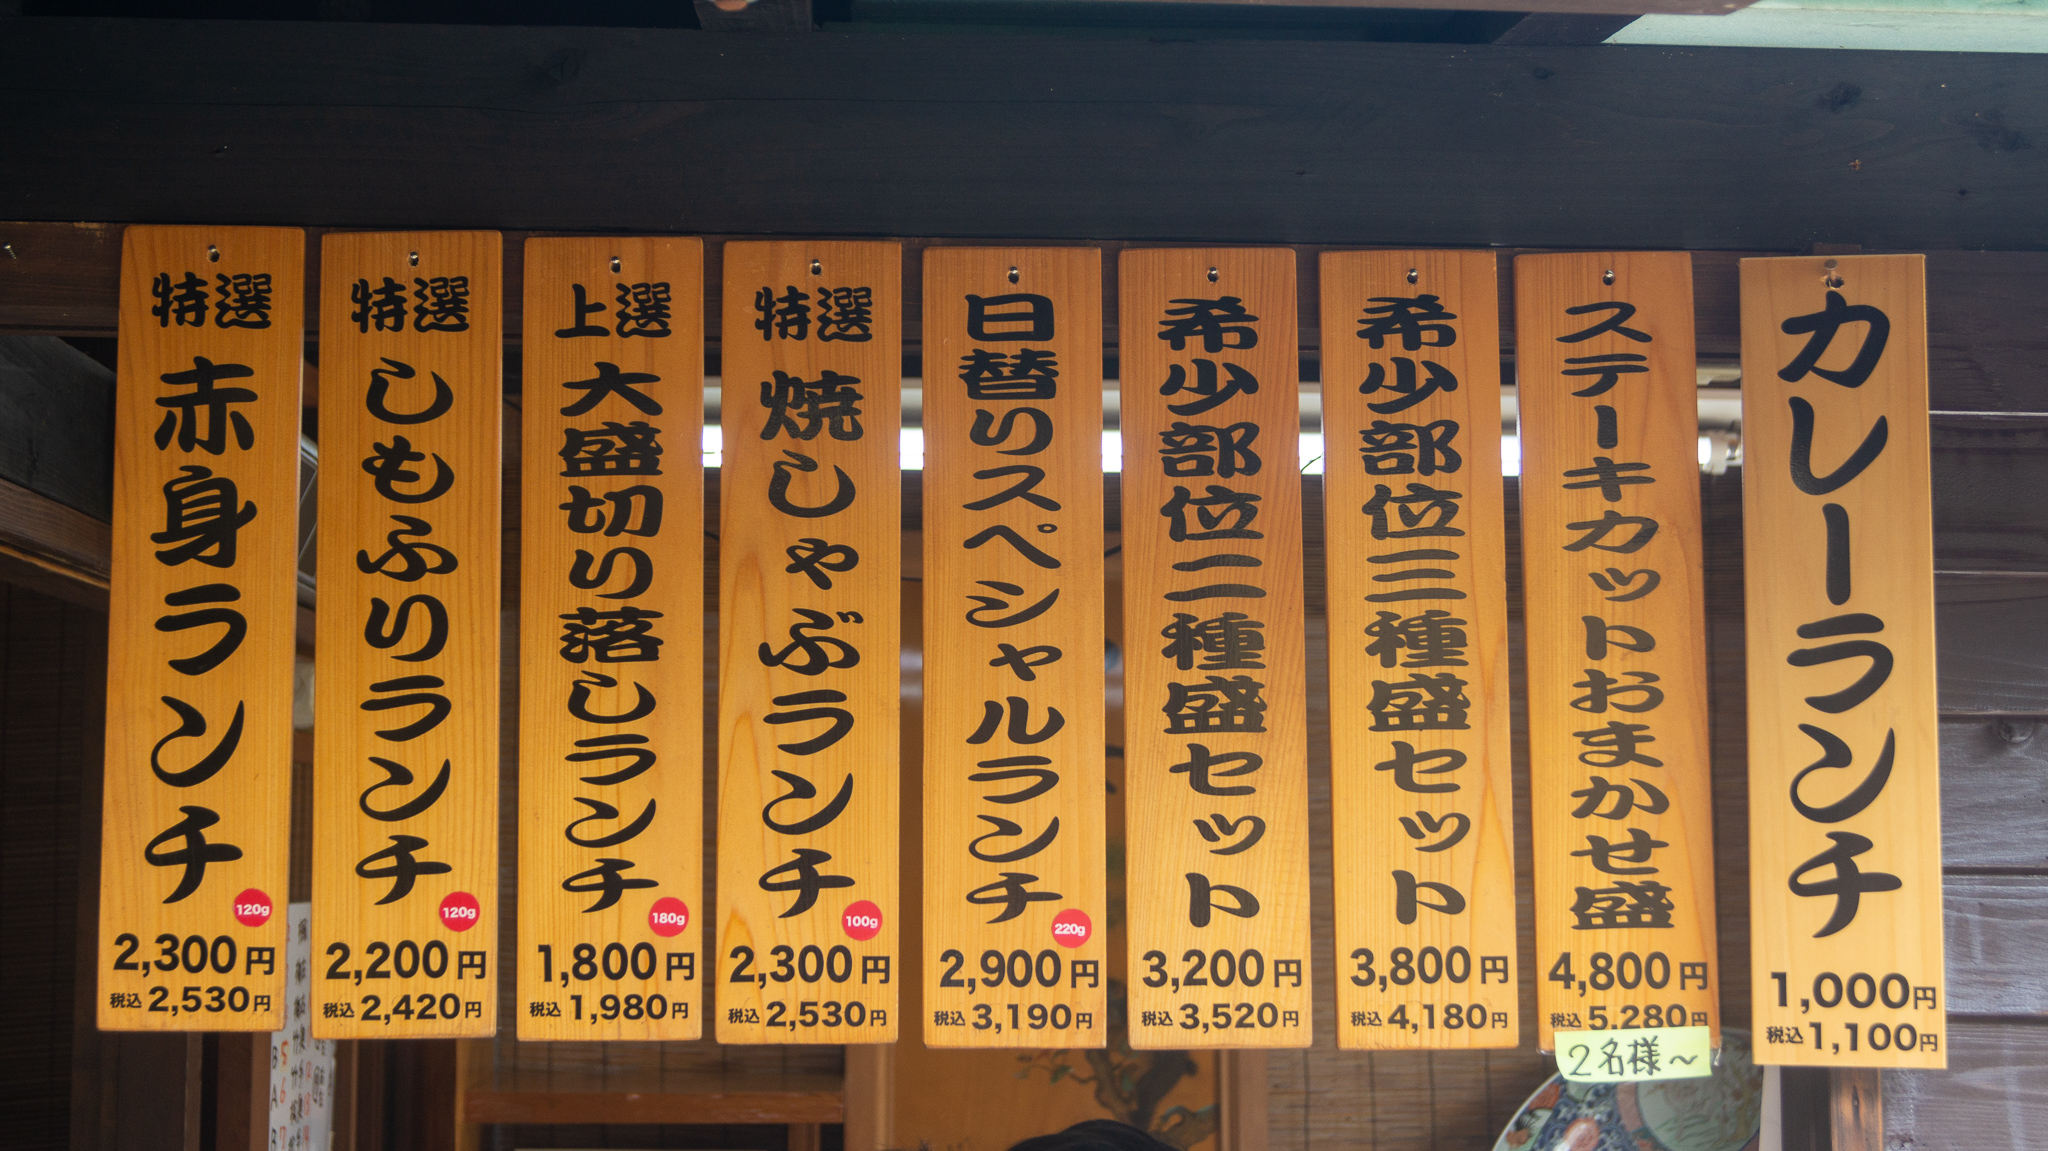 特選
赤身ランチ
120g
2,300円
税込2,530円
特選
しもふりランチ
120g
2,200円
税込2,420円
上選
大盛切り落しランチ
180g
1,800円
税込1,980円
特選
焼しゃぶランチ
100g
2,300円
税込2,530円
日替りスペシャルランチ
220g
2,900円
税込3,190円
希少部位二種盛セット
3,200円
税込3,520円
希少部位三種盛セット
3,800円
税込4,180円
ステーキカットおまかせ盛
4,800円
税込5,280円
2名様～
カレーランチ
1,000円
税込1,100円